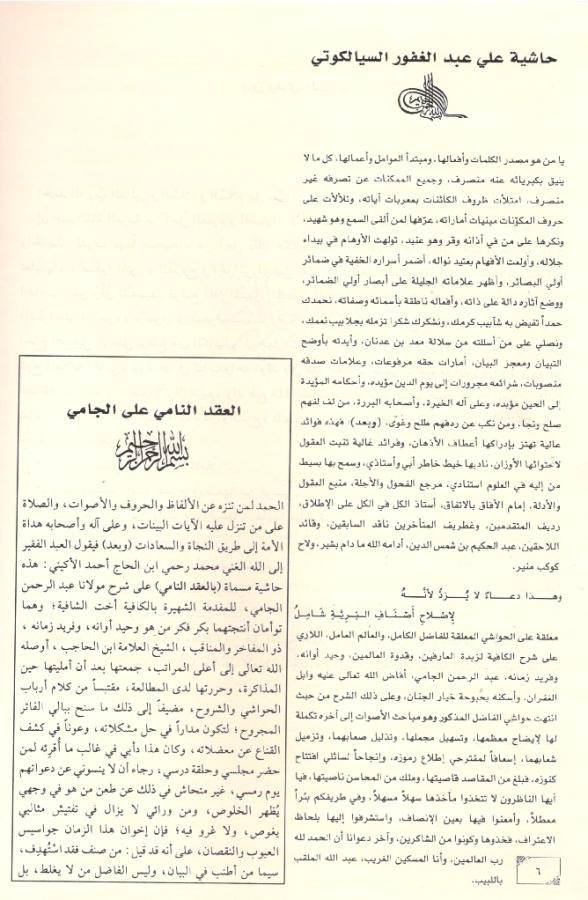 حاشية علي عبد الغفور السيالكوتي
يا من هو مصدر الكلمات وأفعالها، ومبتدأ العوامل وأعمالها، كل ما لا
يليق بكبريائه عنه منصرف، وجميع الممكنات عن تصرفه غير
منصرف، امتلأت ظروف الكائنات بمعربات آياته، وتلألأت على
حروف المكوّنات مبنيات أماراته، عرّفها لمن ألقى السمع وهو شهيد،
ونكرها على من في آذانه وقر وهو عنيد، تولهت الأوهام في بيداء
جلاله، وأولعت الأفهام بعتيد نواله، أضمر أسراره الخفية في ضمائر
أولي البصائر، وأظهر علاماته الجليلة على أبصار أولي الضمائر،
ووضع آثاره دالة على ذاته، وأفعاله ناطقة بأسمائه وصفاته، نحمدك
حمداً تفيض به شآبيب كرمك، ونشكرك شكرا تزمله بجلابيب نعمك،
ونصلي على من أسللته من سلالة معد بن عدنان، وأيدته بأوضح
التبيان ومعجز البيان، أمارات حقه مرفوعات، وعلامات صدقه
منصوبات، شرائعه مجرورات إلى يوم الدين مؤيده، وأحكامه المؤيدة
إلى الحين مؤبده، وعلى آله الخيرة، وأصحابه البررة، من لف لفهم
صلح ونجا، ومن نكب عن ردفهم طلح وغوى، (وبعد): فهذه فوائد
عالية تهتز بإدراكها أعطاف الأذهان، وفرائد غالية تنبت العقول
لاحتوائها الأوزان، ناديها خيط خاطر أبي وأستاذي، وسمح بها بسيط
من إليه في العلوم استنادي، مرجع الفحول والأجلة، منبع العقول
والأدلة، إمام الآفاق بالاتفاق، أستاذ الكل في الكل على الإطلاق،
رديف المتقدمين، وغطريف المتأخرين ناقد السابقين، وقائد
اللاحقين، عبد الحكيم بن شمس الدين، أدامه الله ما دام بشير، ولاح
كوكب منير.
وهــذا دعــاءٌ لا يُــرَدُّ لأنَّــهُ
لإصلاح أصْنَافِ البَرِيَّةِ شَامِلُ
معلقة على الحواشي المعلقة للفاضل الكامل، والعالم العامل، اللاري
على شرح الكافية لزبدة العارفين، وقدوة العالمين، وحيد أوانه،
وفريد زمانه، عبد الرحمن الجامي، أفاض الله تعالى عليه وابل
الغفران، وأسكنه بحبوحة خيار الجنان، وعلى ذلك الشرح من حيث
انتهت حواشي الفاضل المذكور وهو مباحث الأصوات إلى آخره تكملة
لها لإيضاح معظمها، وتسهيل مجملها، وتذليل صعابهما، وتزميل
شعابهما، إسعافاً لمقترحي إطلاع رموزه، وإنجاحاً لسائلي افتتاح
كنوزه، فبلغ من المقاصد قاصيتها، وملك من المحاسن ناصيتها، فيا
أيها الناظرون لا تتخذوا مأخذها سهلاً سهلاً، وفي طريفكم بئراً
معطلاً، وأمعنوا فيها بعين الإنصاف، واستشرفوا إليها بلحاظ
الاعتراف، فخذوها وكونوا من الشاكرين، وآخر دعوانا أن الحمد لله
رب العالمين، وأنا المسكين الغريب، عبد الله الملقب
باللبيب.
العقد النامي على الجامي
بسم الله الرحمن الرحيم
الحمد لمن تنزه عن الألفاظ والحروف والأصوات، والصلاة
على من تنزل عليه الآيات البينات، وعلى آله وأصحابه هداة
الأمة إلى طريق النجاة والسعادات (وبعد) فيقول العبد الفقير
إلى الله الغني محمد رحمي ابن الحاج أحمد الأكيني: هذه
حاشية مسماة (بالعقد النامي) على شرح مولانا عبد الرحمن
الجامي، للمقدمة الشهيرة بالكافية أخت الشافية؛ وهما
توأمان أنتجتهما بكر فكر من هو وحيد أوانه، وفريد زمانه،
ذو المفاخر والمناقب، الشيخ العلامة ابن الحاجب، أوصله
الله تعالى إلى أعلى المراتب، جمعتها بعد أن أمليتها حين
المذاكرة، وحررتها لدى المطالعة، مقتبساً من كلام أرباب
الحواشي والشروح، مضيفاً إلى ذلك ما سنح ببالي الفاتر
المجروح؛ لتكون مداراً في حل مشكلاته، وعوناً في كشف
القناع عن معضلاته، وكان هذا دأبي في غالب ما أُقرئه لمن
حضر مجلسي وحلقة درسي، رجاء أن لا ينسوني عن دعواتهم
يوم رمسي، غير منحاش في ذلك عن طعن من هو في وجهي
يُظهر الخلوص، ومن ورائي لا يزال في تفتيش مثالبي
يغوص، ولا غرو فيه؛ فإن إخوان هذا الزمان جواسيس
العيوب والنقصان، على أنه قد قيل: من صنف فقد استُهدِف،
سيما من أطنب في البيان، وليس الفاضل من لا يغلط، بل
٦